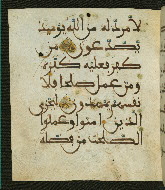 لا مرد له من الله يوميذ
يصدعون من
كفر فعليه كفره
ومن عمل صلحا فلا
نفسهم يمهدون ليجزي
الذين امنوا وعملوا
الصلحت من فضله